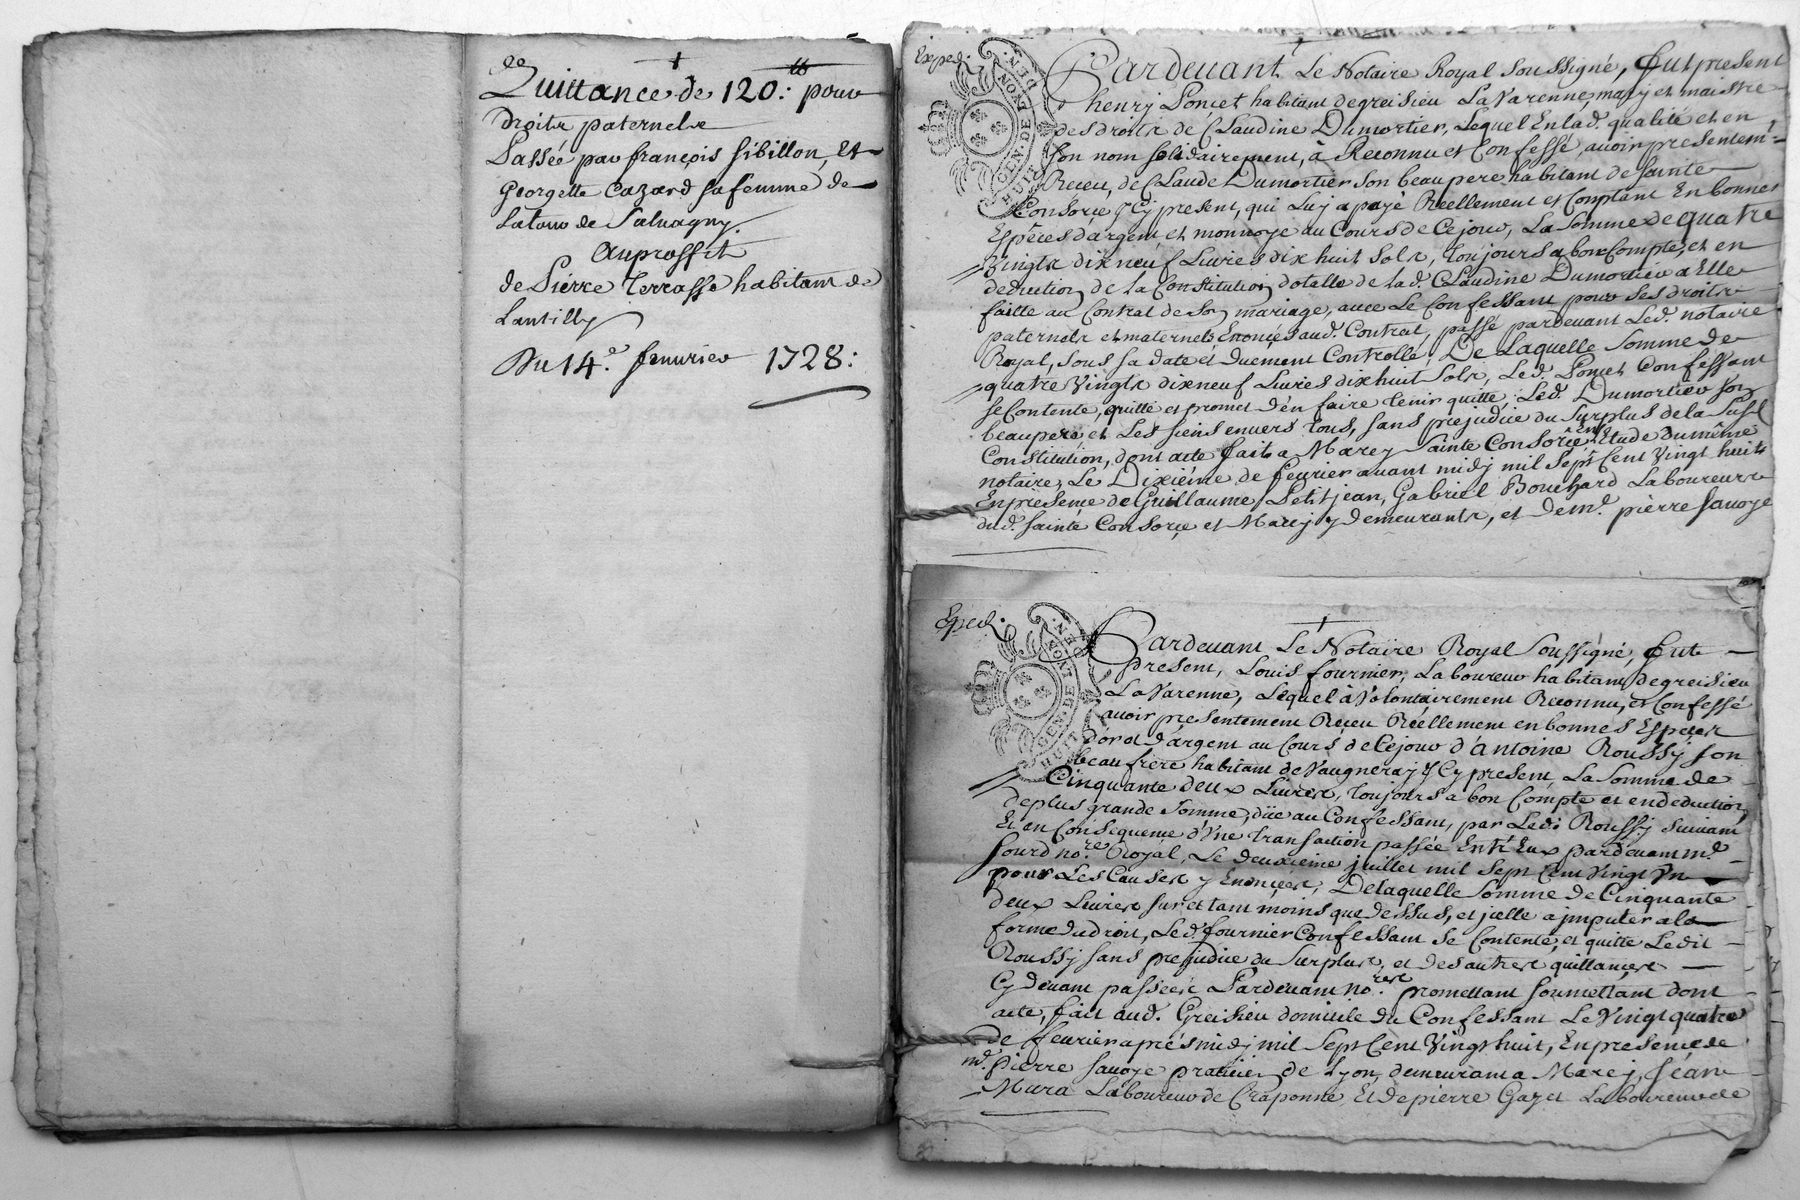 de
Quittance de 120.ˡᵗ pour
droits paternels
Passée par françois sibillon, et
Georgette Cazard sa femme de
Latour de Salvagny.
Auproffit
de Piérre Terrasse habitant de
Lantilly
Du 14.e feuurier 1728:
Exped.
Pardeuant Le Notaire Royal soussigné, fut present
henry Poncet habitant de greisieu La Varenne, mary et maistre
des droits de Claudine Dumortier, Lequel En lad. qualité et en
son nom solidairement, à Reconnu et Confessé, auoir presentem.t
Receu, de Claude Dumortier son beaupere habitant de sainte
Consorçe Cy present, qui Luy a payé Réellement et Comptant En bonnes
Espêces d'argent et monnoye au Cours de Cejour, La Somme de quatre
Vingts dix neuf Liures dix huit Sols, toujours a bon Compte, et en
deduction de la Constitution dotalle de lad. Claudine Dumortier a Elle
faitte au Contrat de Son mariage, auec Le Confessant pour ses droits
paternels et maternels Enoncés aud. Contrat, passé pardeuant Led. notaire
Royal, sous sa date et Duement Controllé, De Laquelle Somme de
quatre Vingts dix neuf Liures dix huit Sols, Led. Poncet Confessant
se Contente, quitte et promet d'en faire tenir quitte, Led. Dumortier son
beaupere, et Les siens enuers tous, sans prejudice du Surplus de la Susd.
Constitution, dont acte fait a Marcy Sainte Consorçe En Etude du même
notaire, Le Dixiéme de feurier auant midy mil Sept Cent Vingt huit
En presence de Guillaume Petitjean, Gabriel Bouchard Laboureurs
dud. sainte Consorçe et Marcy y demeurants, et de m.e piérre sauoye
HUIT DEN. GEN. DE LYON
Exped.
Pardeuant Le Notaire Royal Soussigné, fut
present, Louis fournier, Laboureur habitant de greisieu
La Varenne, Lequel à Volontairement Reconnu, et Confessé
auoir presentement Receu Réellement en bonnes Espêces
d'or et d'argent au Cours de Cejour d'antoine Roussy son
beau frere habitant de Vaugneray Cy present La Somme de
Cinquante deux Liures, toujours a bon Compte et en deduction
de plus grande Somme, düe au Confessant, par Ledi Roussy suiuant
Et en Consequence d'Vne transaction passée Entr'Eux pardeuant m.e
sourd no.re Royal, Le deuxieme juillet mil sept Cent Vingt Vn
pour Les Causes y Enoncées, De laquelle Somme de Cinquante
deux Liures sur et tant moins que dessus, et jcelle a jmputer a la
forme du droit, Led. fournier Confessant se Contente, et quitte Ledit
Roussy sans prejudice du Surplus, et des autres quittances
Cy deuant passées Pardeuant no.res promettant soumettant dont
acte, fait aud. Greisieu domicile du Confessant Le Vingt quatre
de feurier aprés midy mil Sept Cent Vingt huit, En presence de
m.e Pierre sauoye praticien de Lyon, demeurant a Marcy, Jean
Mura Laboureur de Craponne, Et de piérre Gayet Laboureur de
HUIT DEN. GEN. DE LYON